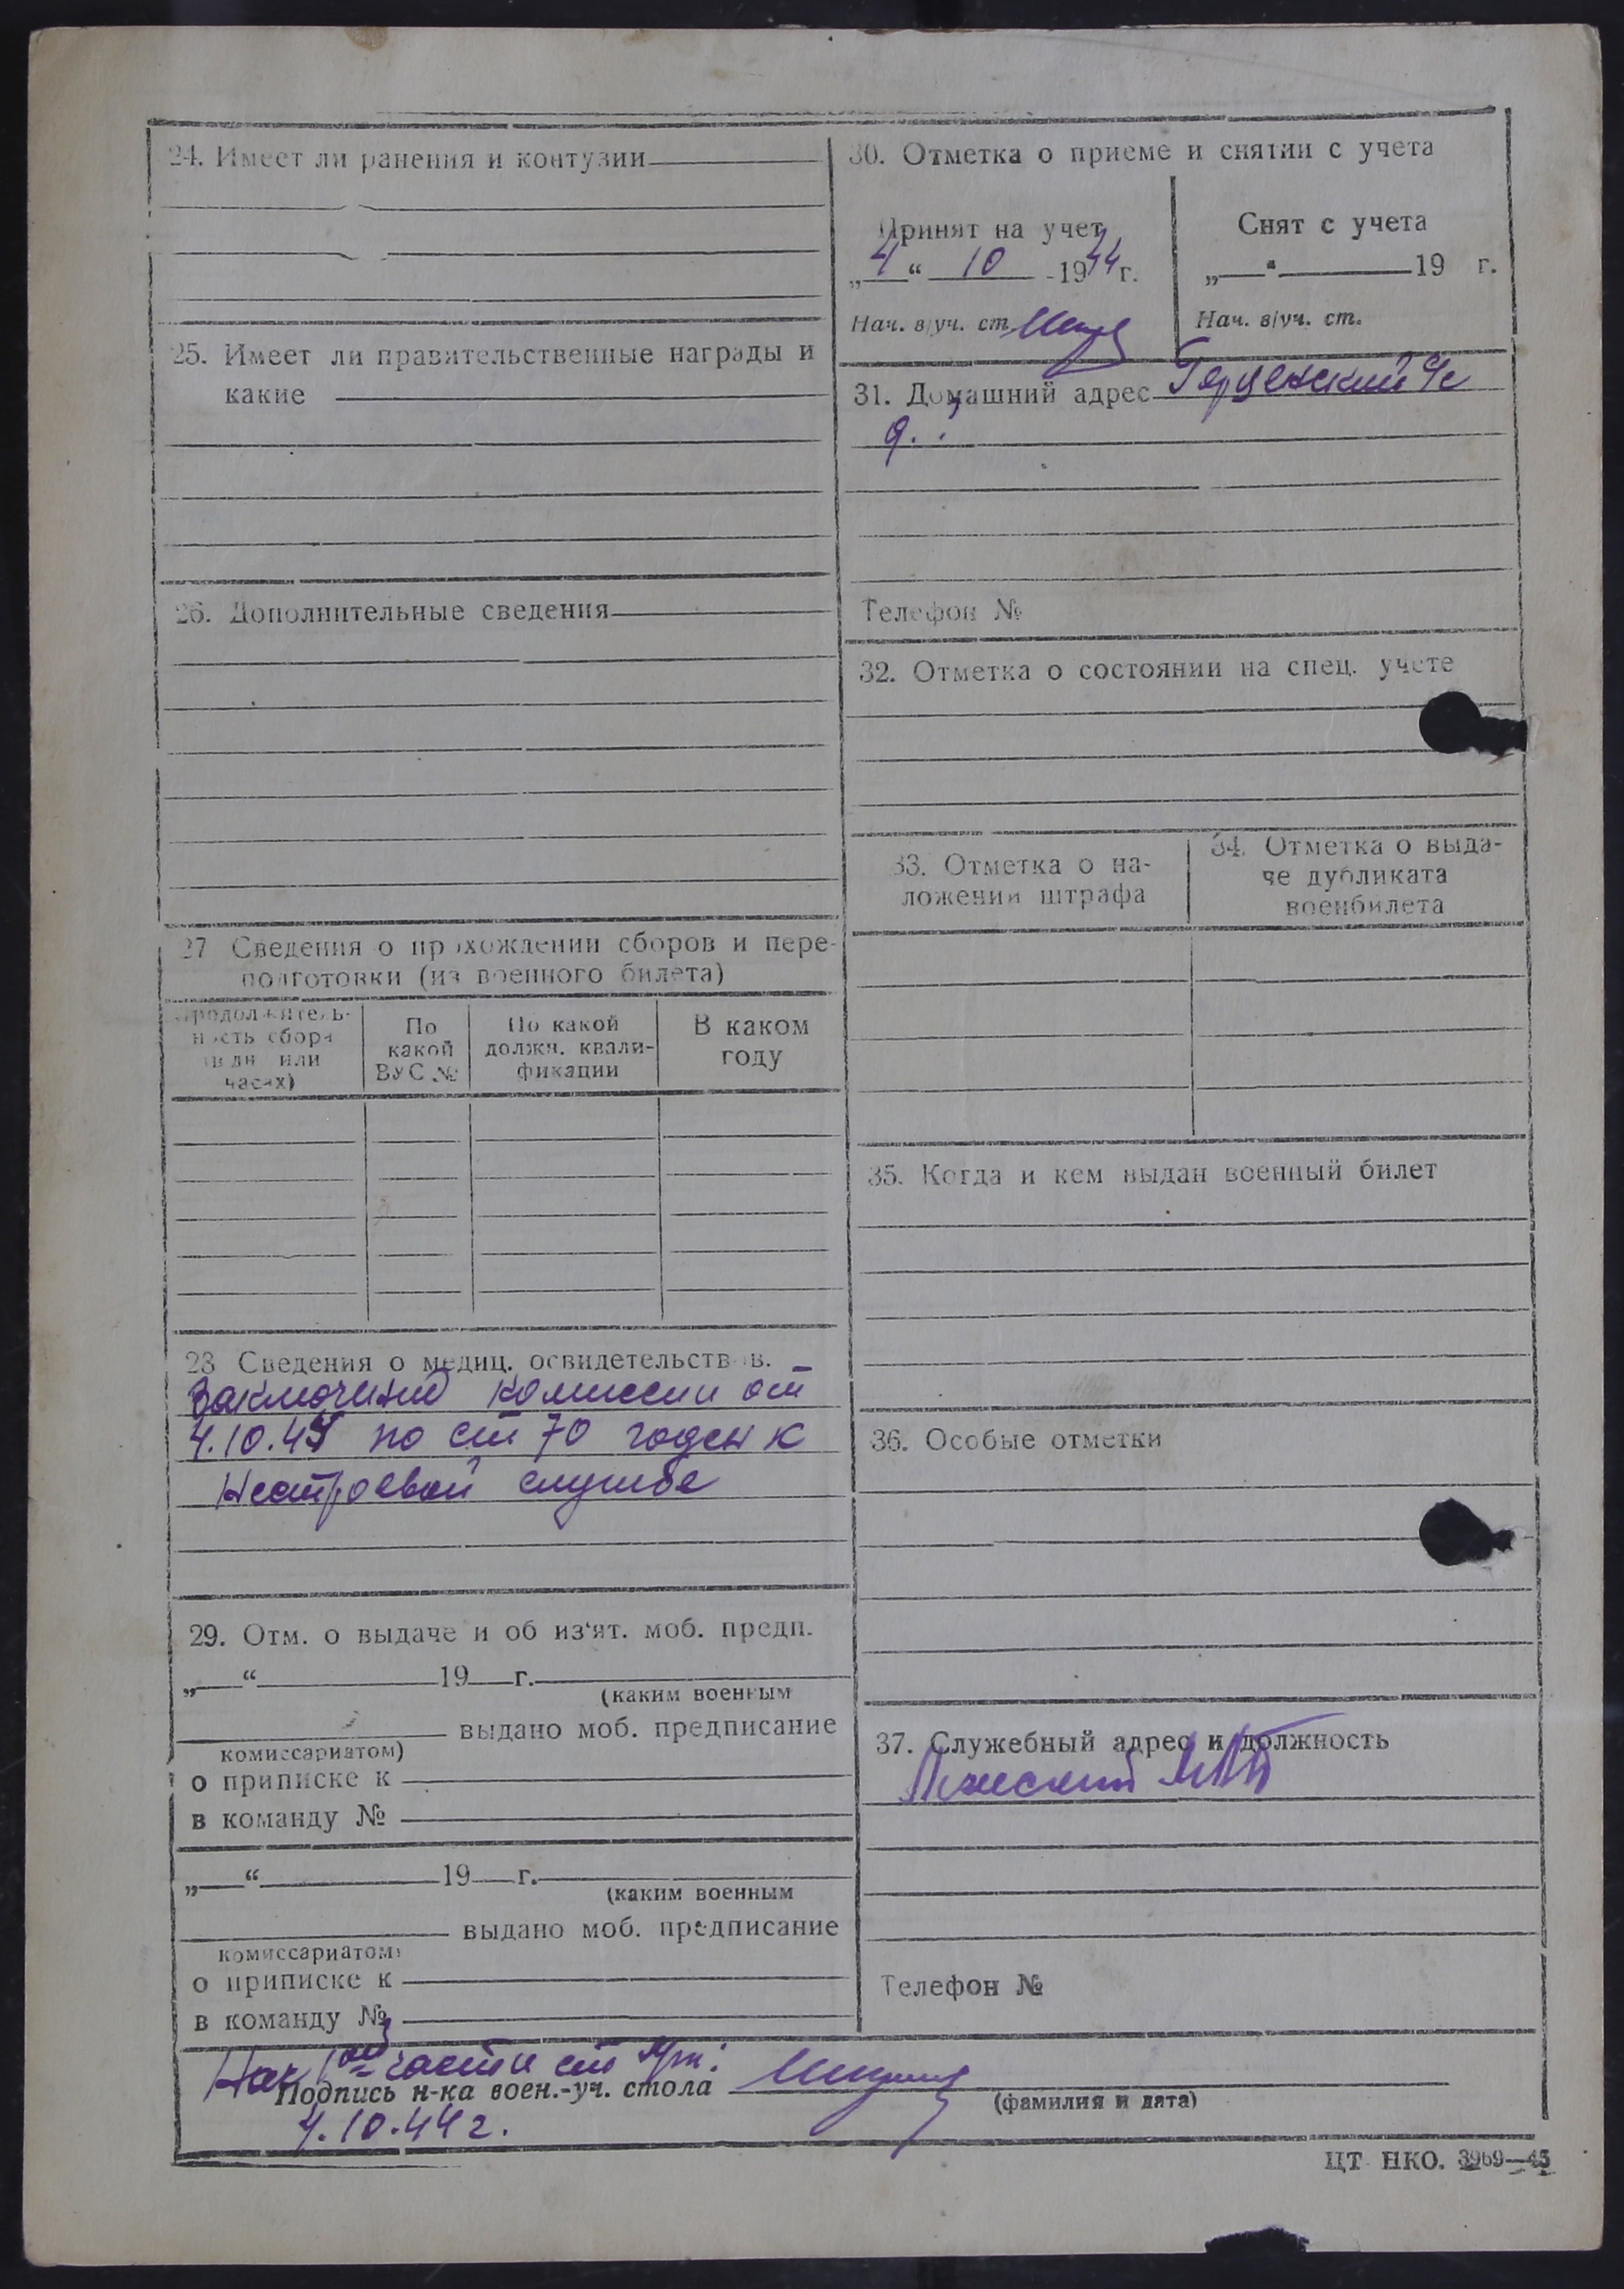 24. Имеет ли ранения и контузии
25. Имеет ли правительственные награды и
какие
26. Дополнительные сведения
27 Сведения о прохождении сборов и пере-
подготовки (из военного билета)
Продолжитель-
ность сбора
(в дн или
часах)
По
какой
ВУС №
По какой
должн. квали-
фикации
В каком
году
28 Сведения о медиц. освидетельствов.
Заключение комиссии от
4.10.44 по ст 70 годен к
Нестроевой службе
29. Отм. о выдаче и об из'ят. моб. предп.
„ “ 19 г.
(каким военным
выдано моб. предписание
комиссариатом)
о приписке к
в команду №
„ “ 19 г.
(каким военным
выдано моб. предписание
комиссариатом)
о приписке к
в команду №
30. Отметка о приеме и снятии с учета
Принят на учет
„4“ 10 -1944 г.
Нач. в/уч. ст.
Снят с учета
„ “ 19 г.
Нач. в/уч. ст.
31. Домашний адрес
Телефон №
32. Отметка о состоянии на спец. учете
33. Отметка о на-
ложении штрафа
34. Отметка о выда-
че дубликата
военбилета
35. Когда и кем выдан военный билет
36. Особые отметки
37. Служебный адрес и должность
Телефон №
Нач 1ой части ст
Подпись н-ка воен.-уч. стола
(фамилия и дата)
4.10.44 г.
ЦТ НКО. 3969—45